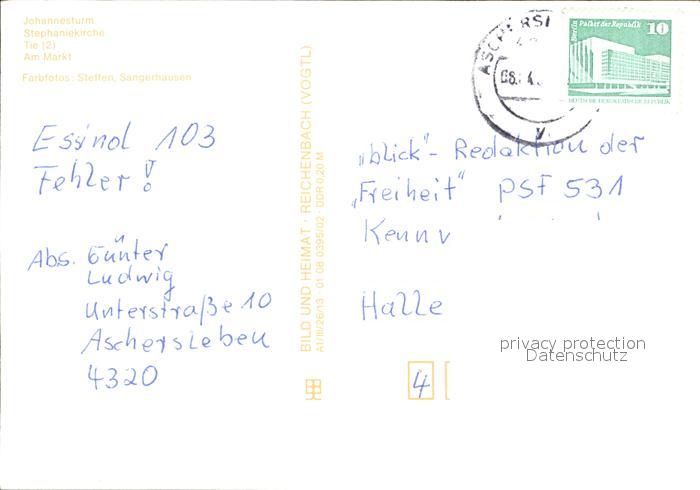 Johannesturm
Stephaniekirche
Tie (2)
Am Markt
Farbfotos: Steffen, Sangerhausen
Fehler!
103
Abs. Günter
Ludwig
Unterstraße 10
Aschersleben
4320
BILD UND HEIMAT · REICHENBACH (VOGTL)
A1/III/26/13 · 01 08 0395/02 · DDR 0,20 M
Berlin Palast der Republik
10
DEUTSCHE DEMOKRATISCHE REPUBLIK
ASCHERSL
„blick"- Redaktion der
„Freiheit" PSF 531
Kennv
Halle
4
privacy protection
Datenschutz